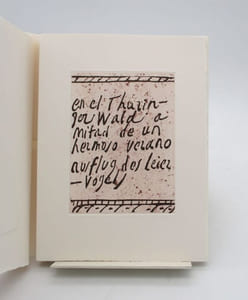 en el Thürin-
ger Wald a
mitad de un
hermoso verano
ausflug des Leier-
-Vogels